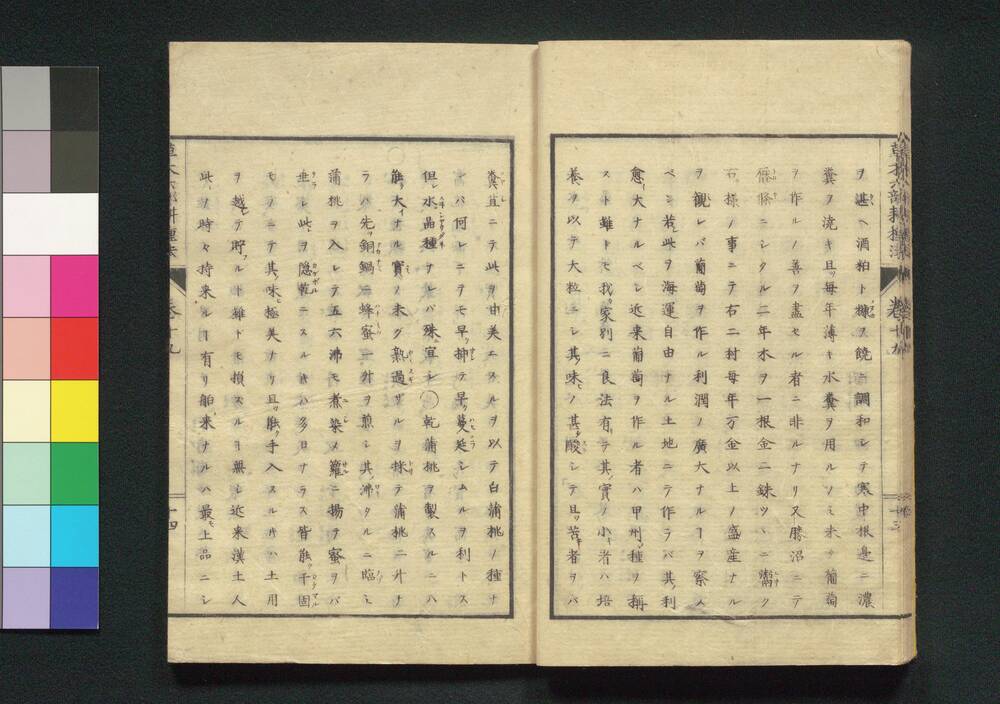 ヲ甚ヘ酒粕ト糠ヲ饒ニ調和シテ寒中根邉ニ濃
糞ヲ澆キ且ツ毎年薄キ水糞ヲ用ルノミ未タ葡萄
ヲ作ルノ善ヲ盡セル者ニ非ルナリ又勝沼ニテ
ニシタル二年木ヲ一根金二銖ツヽニ鬻ク
右様ノ事ニテ右二村毎年万金以上ノ盛産ナル
ヲ觀レバ葡萄ヲ作ル利潤ノ廣大ナルヿヲ察ス
ベシ若シ此ヲ海運自由ナル土地ニテ作ラバ其利
愈大ナルベシ近来葡萄ヲ作ル者ハ甲州種ヲ稱
スト雖トモ我カ家別ニ良法有テ其實ノ小キ者ハ培
養ヲ以テ大粒ニシ其味ノ其タ酸シテ且ツ苦キ者ヲバ
糞苴ニテ此ヲ甘美ニスルヲ以テ白蒲桃ノ種ナ
レバ何レニテモ早ク挿テ早ク蔓延シムルヲ利トス
但シ水晶種ナレバ殊ニ宜シ〇乾蒲桃ヲ製スルニハ
能ク大イナル實ノ未ダ熟過ザルヲ採テ蒲桃二升ナ
ラバ先ツ銅鍋ニ蜂蜜一升ヲ煎シ其沸タルニ臨ミ
蒲桃ヲ入レテ五六沸モ煮染メ籮ニ揚テ蜜ヲバ
垂シ此ヲ隠乾ニスル𪜈ハ多日ナラス皆能ク干固
モノニテ其味極美ナリ且ツ能ク手入スル𪜈ハ土用
ヲ越テ貯フルト雖トモ損スルヿ無シ近来漢土人
此ヲ時々持来ルヿ有リ舶来ナルハ最モ上品ニシ